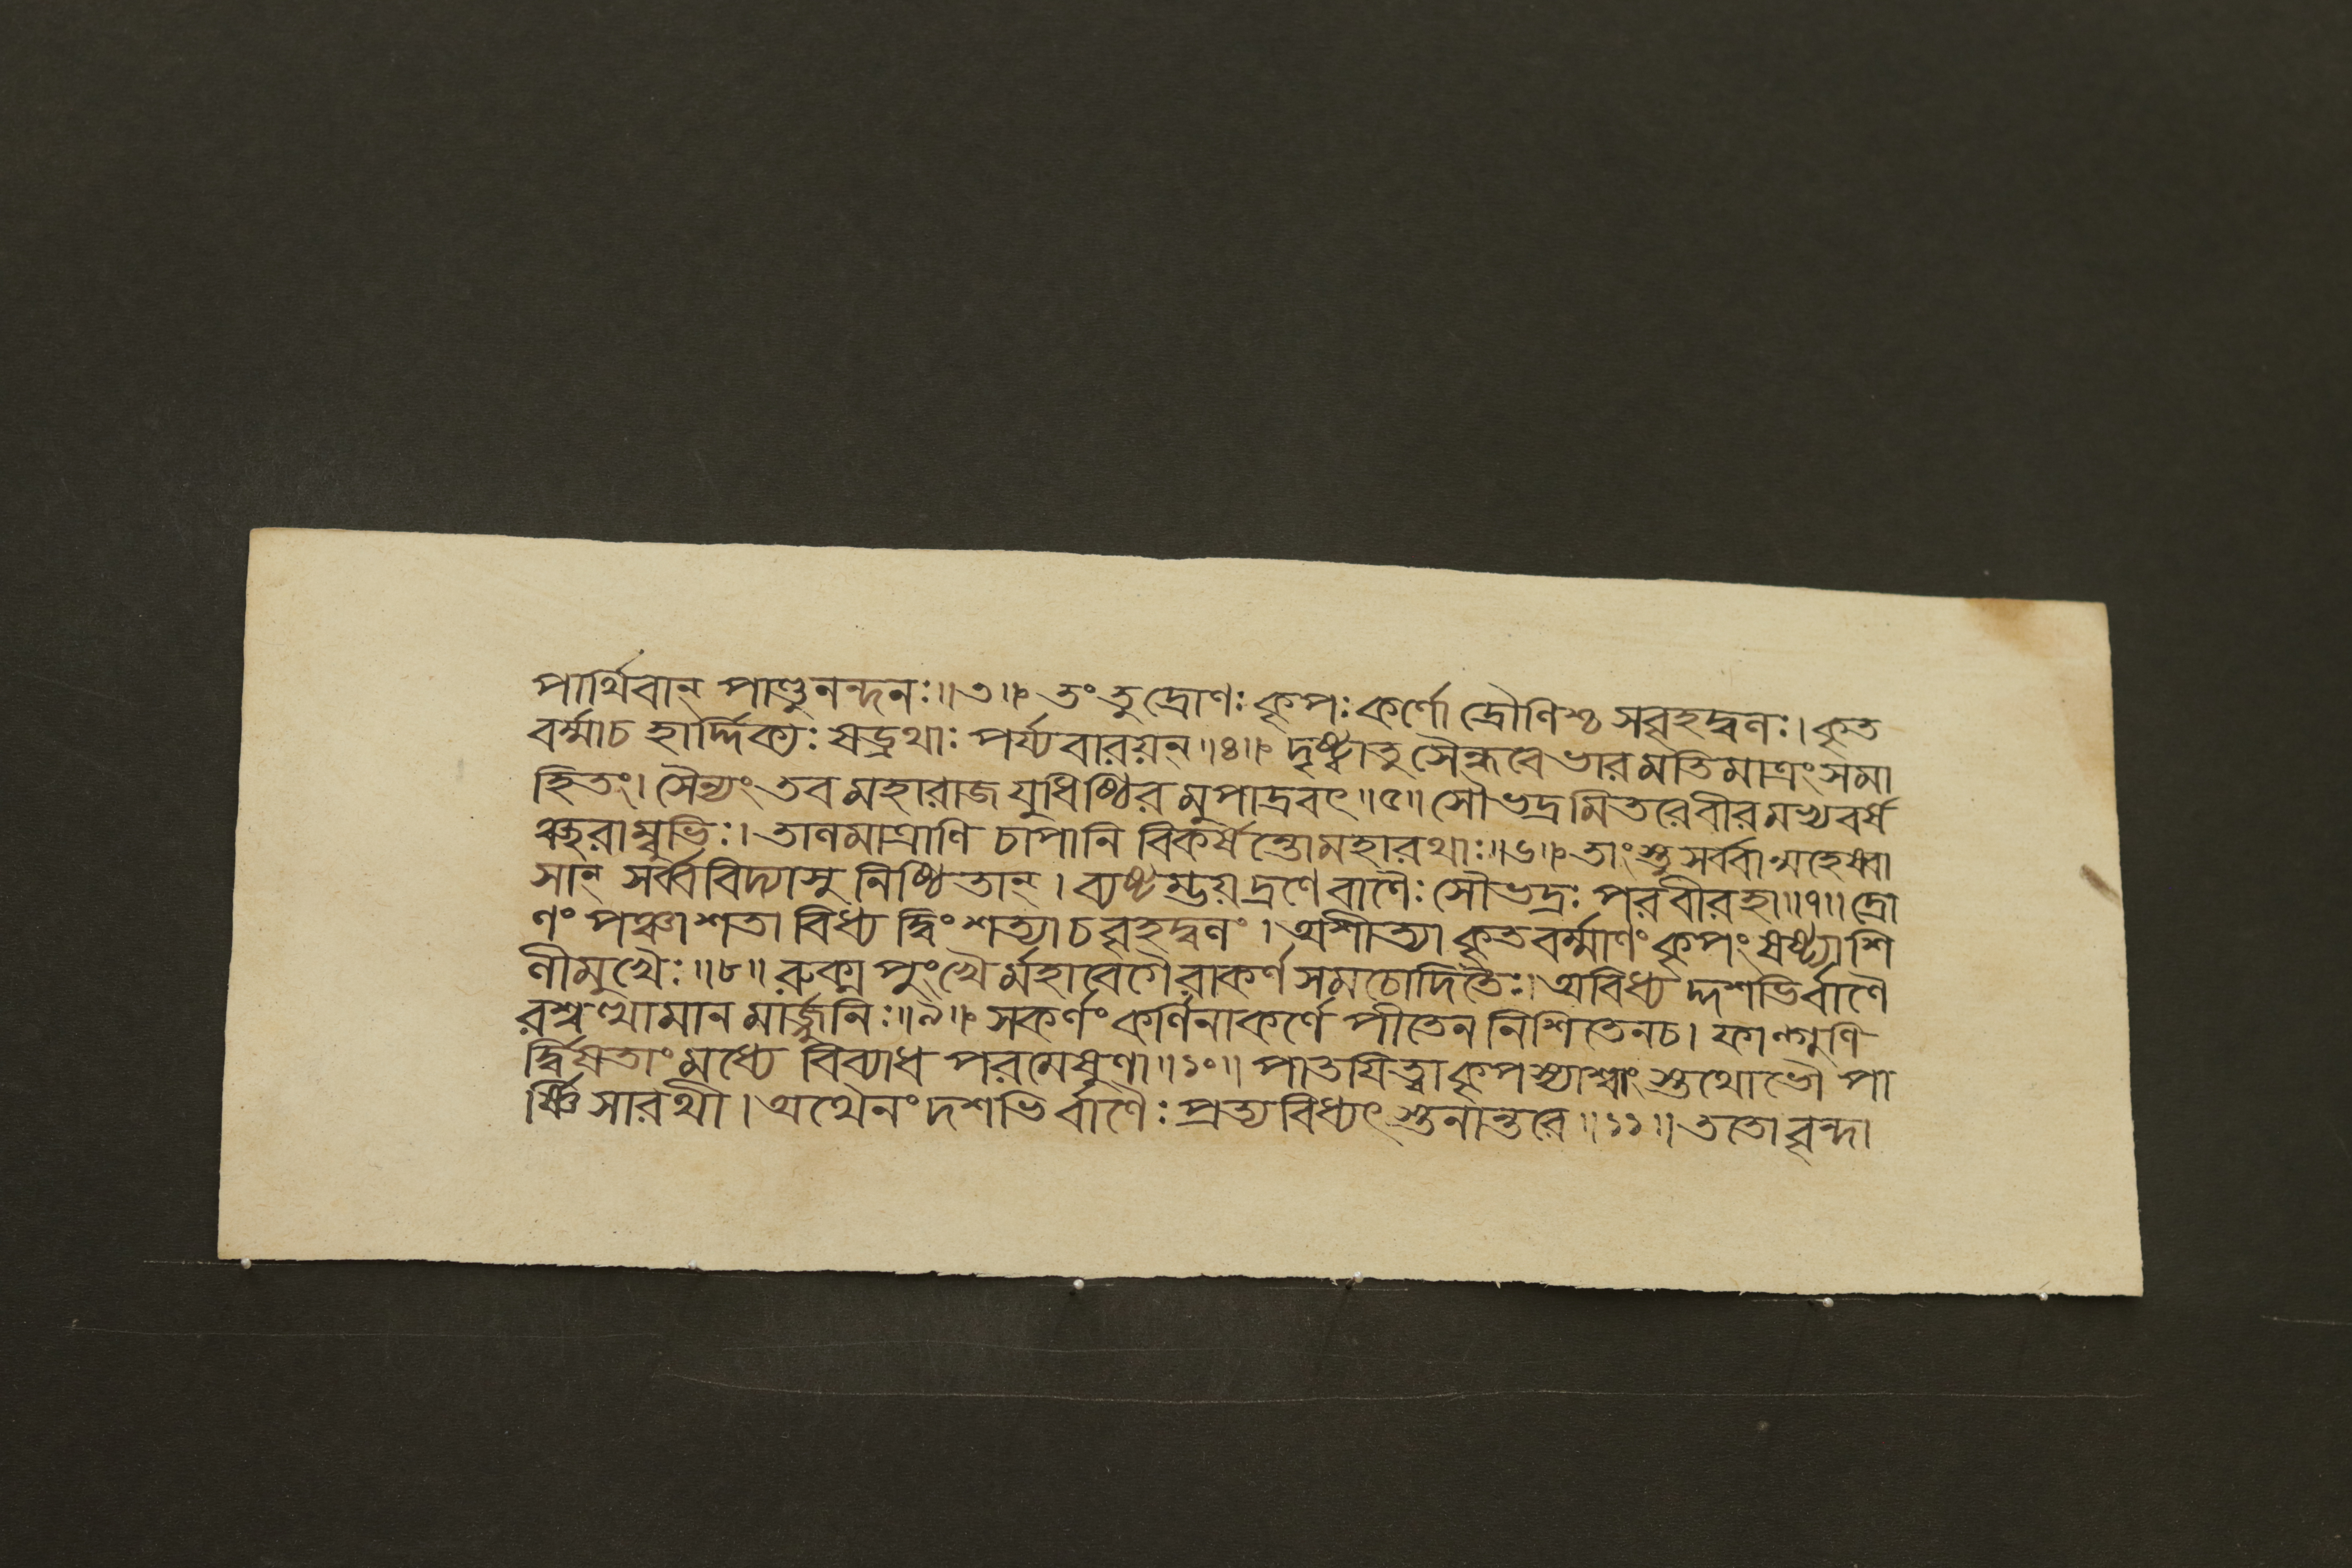 পার্থিবান্ পাণ্ডুনন্দনঃ॥৩॥ তং তু দ্রোণঃ কৃপঃ কর্ণো দ্রৌণিশ্চ সবৃহদ্বলঃ। কৃত
বর্ম্মাচ হার্দ্দিক্যঃ ষড্রথাঃ পর্য্যবারয়ন্॥৪॥ দৃষ্ট্বাতু সৈন্ধবে ভারমতিমাত্রং সমা
হিতং। সৈন্যং তব মহারাজ যুধিষ্ঠির মুপাদ্রবৎ॥৫॥ সৌভদ্রমিতরেবীরমভ্যবর্ষ
ঞ্ছরাম্বুভিঃ। তালমাত্রাণি চাপানি বিকর্ষন্তোমহারথাঃ॥৬॥ তাংস্তু সর্ব্বান্মহেষ্বা
সান্ সর্ব্ববিদ্যাসু নিষ্ঠিতান্। ব্যষ্টম্ভয়দ্রণে বাণৈঃ সৌভদ্রঃ পরবীরহা॥৭॥ দ্রো
ণং পঞ্চাশতা বিধ্য দ্বিংশত্যা চ বৃহদ্বলং। অশীত্যা কৃতবর্ম্মাণং কৃপং ষষ্ট্যাশি
লীমুখৈঃ॥৮॥ রুক্মপুংখৈর্মহাবেগৈরাকর্ণ সমচোদিতৈঃ। অবিধ্যদ্দশভির্বাণৈ
রশ্বত্থামান মার্জ্জুনিঃ॥৯॥ সকর্ণং কর্ণিনাকর্ণে পীতেন নিশিতেনচ। ফাল্গুণি
র্দ্বিষতাং মধ্যে বিব্যাধ পরমেষুণা॥১০॥ পাতয়িত্বা কৃপস্যাশ্বাং স্তথোভৌ পা
র্ষ্ণিসারথী। অথৈনং দশভির্বাণৈঃ প্রত্যবিধ্যৎ স্তনান্তরে॥১১॥ ততো বৃন্দা